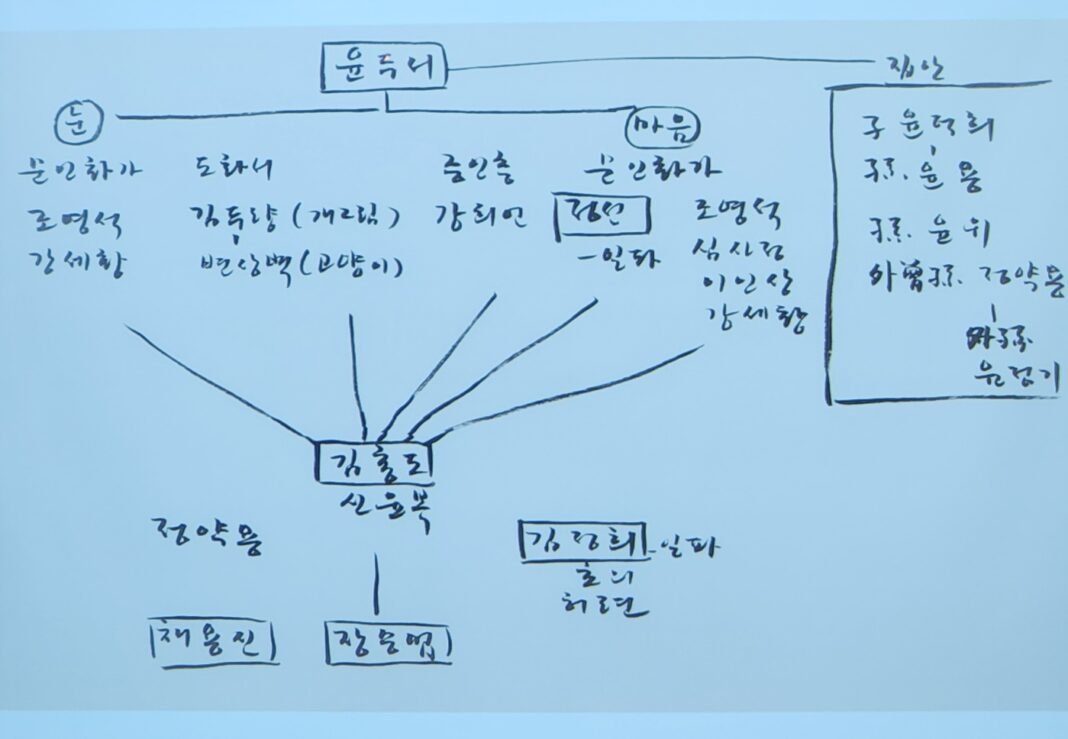 윤두서
집안
눈
마음
문인화가 도화서 중인층 문인화가
조영석 김두량 (개그림) 강희언 정선 조영석
강세황 변상벽 (고양이) -일파 심사정
이인상
강세황
子 윤덕희
孫. 윤용
孫. 윤위
外曾孫. 정약용
外孫
윤정기
김홍도
신윤복
정약용 김정희 -일파
초의
허련
채용신 장승업